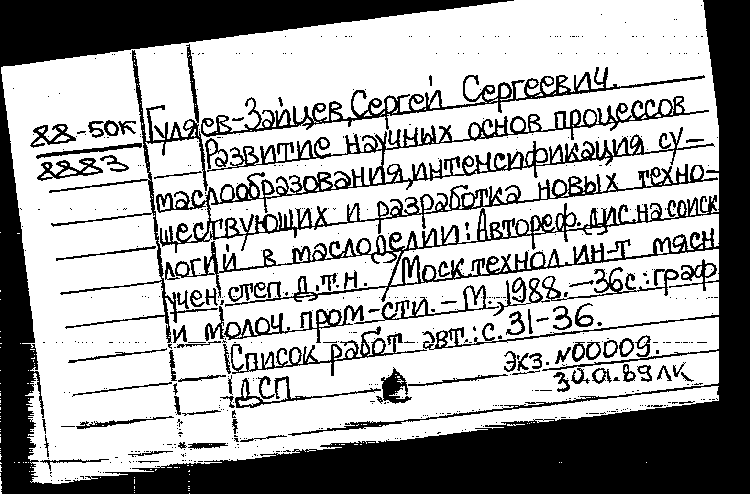 88-50к
8883
Гуляев-Зайцев, Сергей Сергеевич.
Развитие научных основ процессов
маслообразования, интенсификация су-
ществующих и разработка новых техно-
логий в маслоделии: Автореф. дис. на соиск
учен. степ. д.т.н. / Моск. технол. ин-т мясн
и молоч. пром-сти. - М., 1988. - 36с.: граф
Список работ авт.: с. 31-36.
ДСП
Экз. N00009.
30.01.89 ЛК